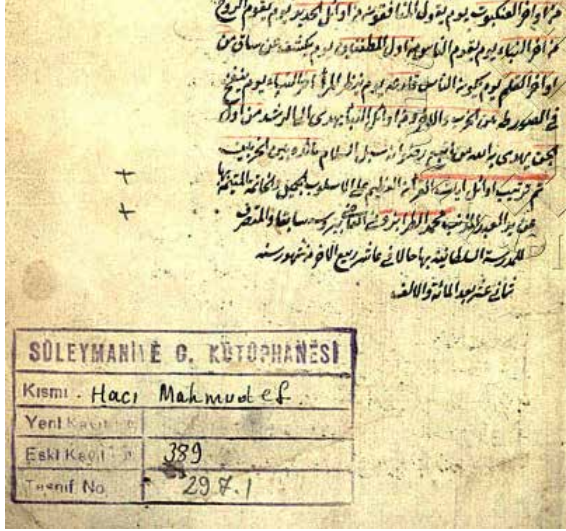 من اواخر العنكبوت يوم يقول المنافقون من اوائل الحديد يوم يقوم الروح
من اخر النباء يوم يقوم الناس من اول المطففين يوم يكشف عن ساق من
اواخر القلم يوم يكون الناس قارعه يوم ينظر المرء اخر النباء يوم ينفخ
في الصور طه من الحزب يهدى الى الرشد من اول
الجن يهدى به الله من اتبع رضوانه سبل السلام مائده بين الحزبين
تم ترتيب اوائل ايات القرآن العظيم على الاسلوب الجميل
عن يد العبد المذنب محمد الطرابزونى القاضى سابقا والمتصرف
للمدرسة السلطانية بها حالا في عاشر ربيع الاخر من شهور سنه
ثمانى عشر بعد المائة والالف
SÜLEYMANİYE G. KÜTÜPHANESİ
Kısmı Hacı Mahmud ef.
Yeni Kayıt
Eski Kayıt 389
Tasnif No. 297.1